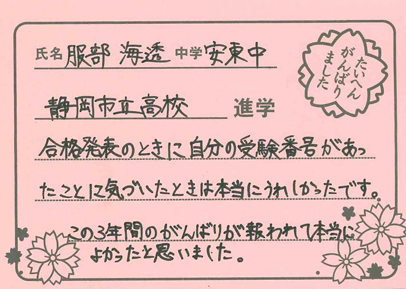 氏名 服部 海透 中学 安東中
たいへん
がんばり
ました
静岡市立高校 進学
合格発表のときに自分の受験番号があっ
たことに気づいたときは本当にうれしかったです。
この3年間のがんばりが報われて本当に
よかったと思いました。